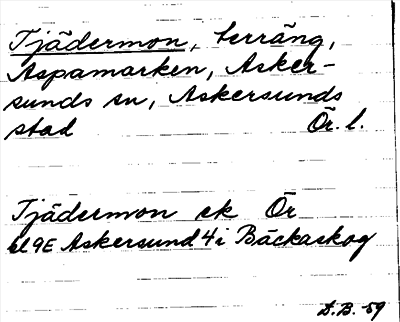 Tjädermon, terräng,
Aspamarken, Asker-
sunds sn, Askersunds
stad Ör. l.
Tjädermon ek Ör
bl 9E Askersund 4i Bäckaskog
D.B. -59